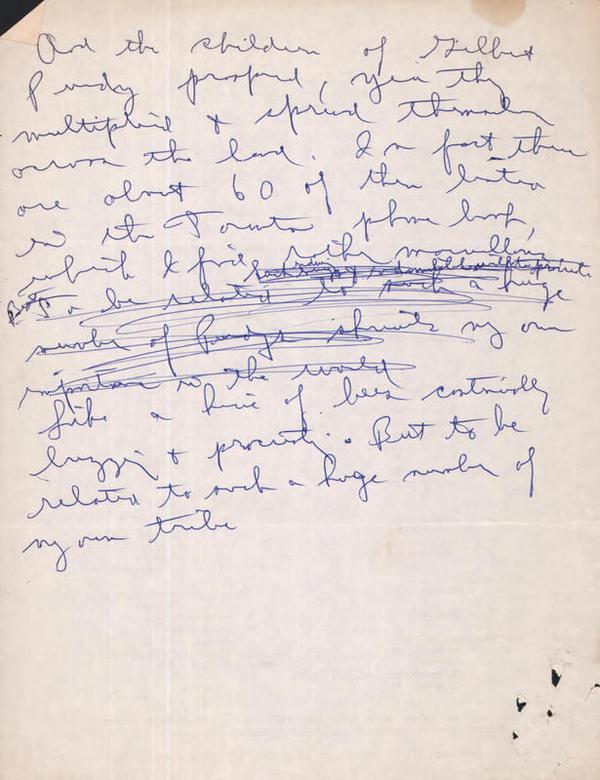 And the children of Gilbert
Purdy prospered, yea they
multiplied & spread themselves
across the land. In fact there
are about 60 of them listed
in the Toronto phone book,
which I find rather
But To be related to such a huge
number of Purdys shrinks my own
importance in the world
Like a hive of bees continually
buzzing & . But to be
related to such a huge number of
my own tribe